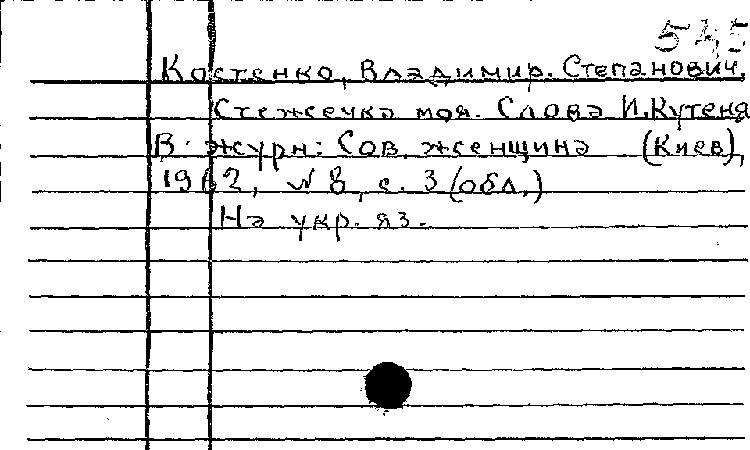 545
Костенко, Владимир. Степанович.
Стежечка моя. Слова И. Кутеня
В журн: Сов. женщина (Киев),
1962, №8, с. 3 (обл.)
На укр. яз.